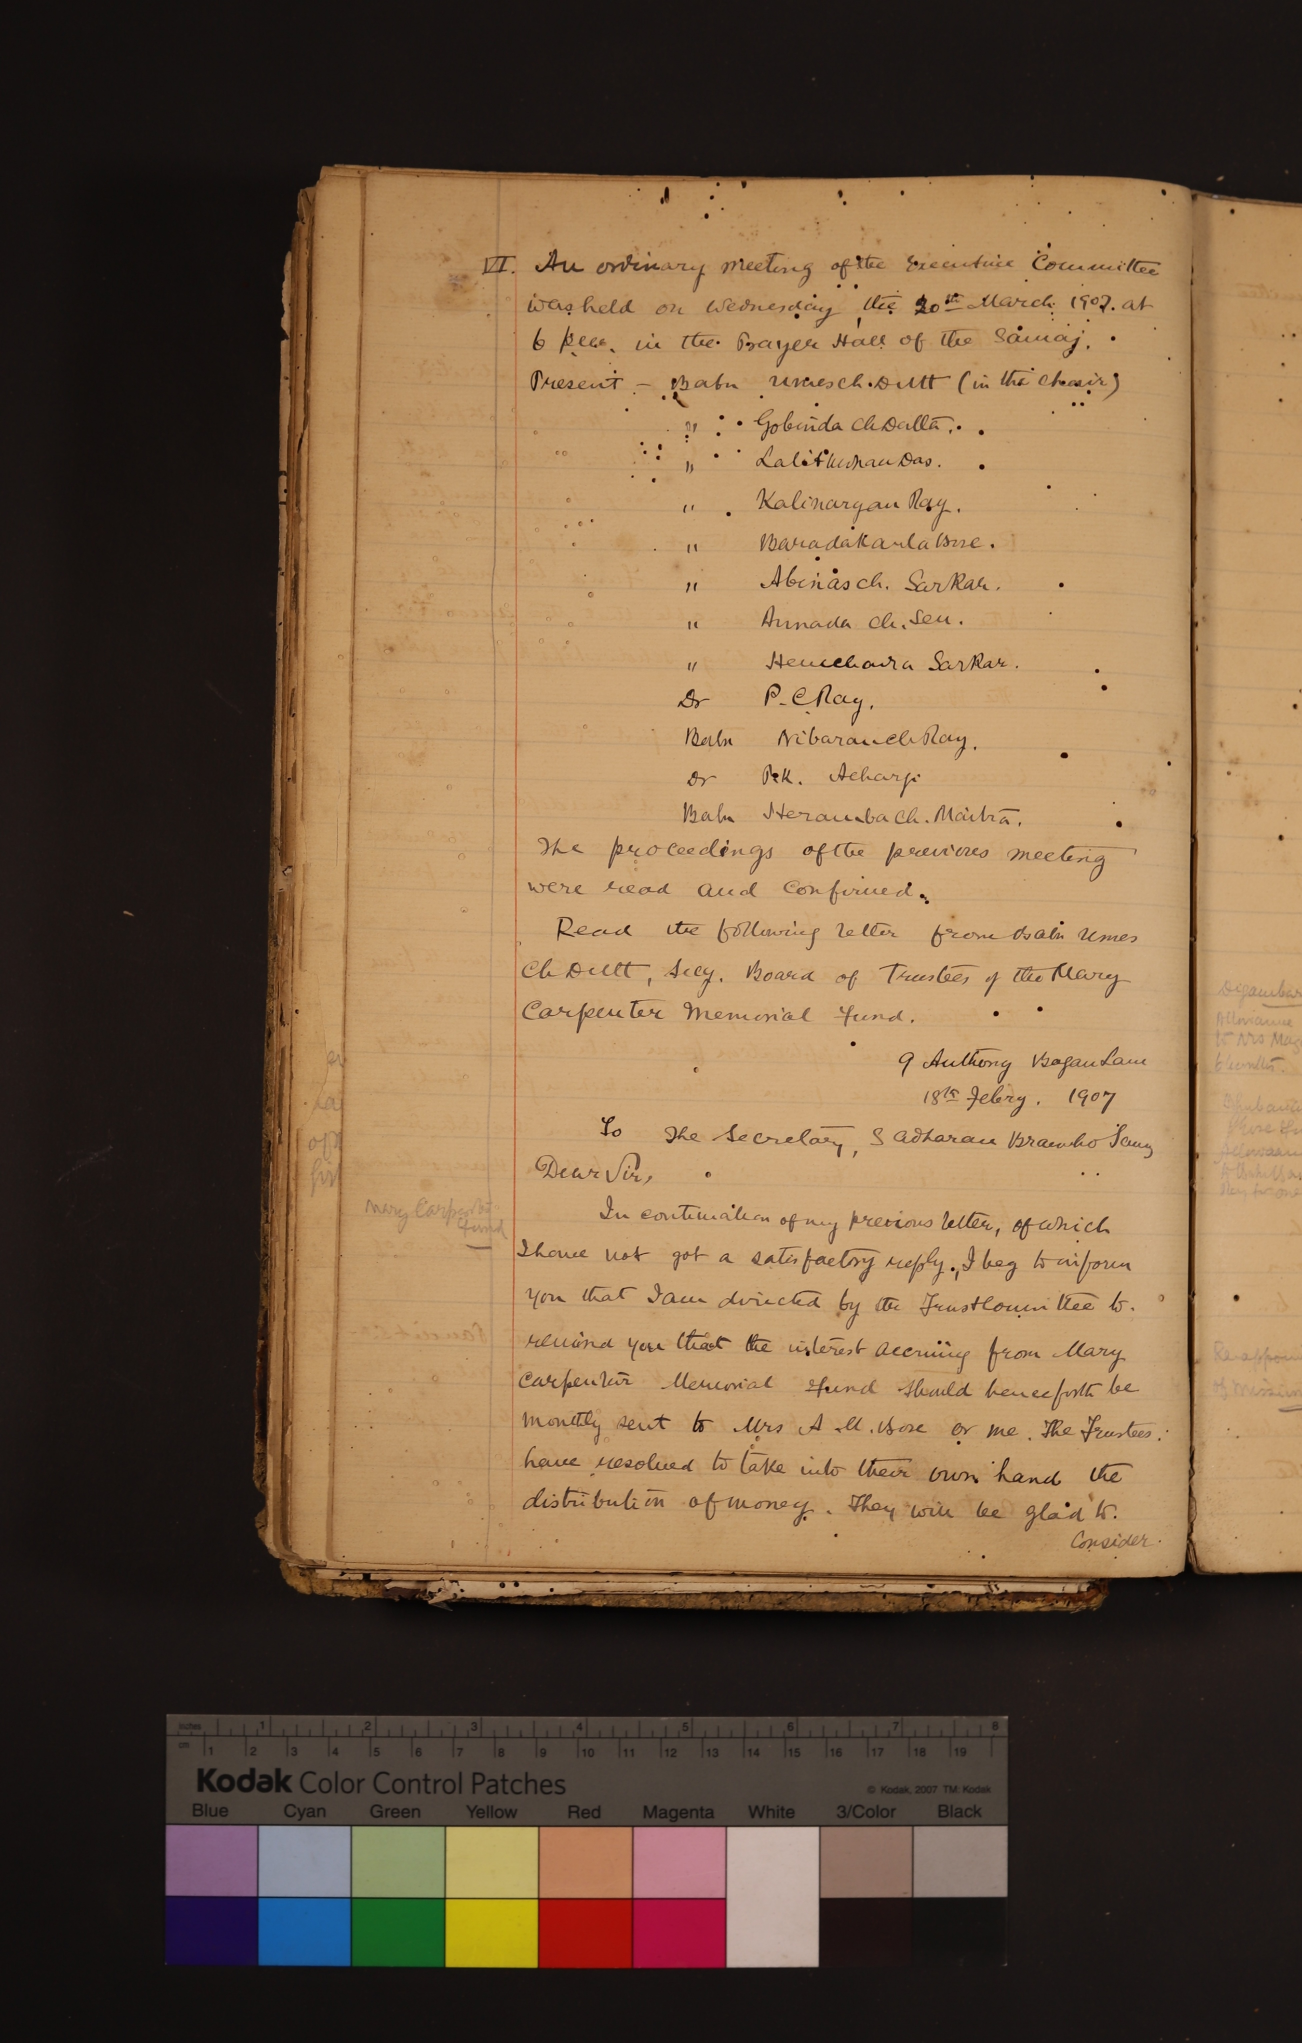 VI. An ordinary meeting of the Executive Committee
was held on Wednesday the 20th March 1907. at
6 p.m. in the Prayer Hall of the Samaj.
Present - Babu Umesch. Dutt (in the chair)
" Gobinda Ch Dutta.
" Lalitmohan Das.
" Kalinarayan Ray.
" Baradakanta Bose.
" Abinasch. Sarkar.
" Annada Ch. Sen.
" Hemchandra Sarkar.
Dr P. C. Ray.
Babu Nibaran Ch Ray.
Dr P.K. Acharji
Babu Heramba Ch. Maitra.
The proceedings of the previous meeting
were read and confirmed.
Read the following letter from Babu Umes
Ch Dutt, Secy. Board of Trustees of the Mary
Carpenter Memorial Fund.
9 Anthony Bagan Lane
18th Febry. 1907
To The Secretary, Sadharan Brahmo Samaj
Dear Sir,
Mary Carpenter
Fund
In continuation of my previous letter, of which
I have not got a satisfactory reply, I beg to inform
you that I am directed by the Trust Committee to
remind you that the interest accruing from Mary
Carpenter Memorial Fund should henceforth be
monthly sent to Mrs A. M. Bose or me. The Trustees
have resolved to take into their own hand the
distribution of money. They will be glad to
Consider
Kodak Color Control Patches
© Kodak, 2007 TM: Kodak
inches 1 2 3 4 5 6 7 8
cm 1 2 3 4 5 6 7 8 9 10 11 12 13 14 15 16 17 18 19
Blue Cyan Green Yellow Red Magenta White 3/Color Black